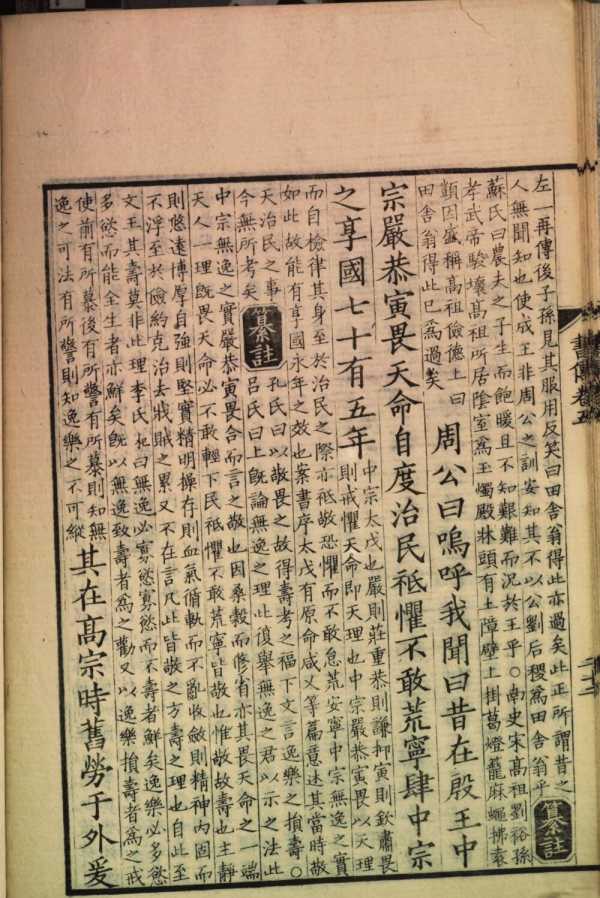 左一再傳後子孫見其服用反笑曰田舍翁得此亦過矣此正所謂昔之
人無聞知也使成王非周公之訓安知其不以公劉后稷爲田舍翁乎 纂註
蘇氏曰農夫之子生而飽暖且不知艱難而況於王乎○南史宋高祖劉裕孫
孝武帝駿壞高祖所居陰室爲玉燭殿牀頭有土障壁上掛葛燈籠麻蠅拂袁
顗因盛稱高祖儉德上曰
田舍翁得此已爲過矣
周公曰嗚呼我聞曰昔在殷王中
宗嚴恭寅畏天命自度治民祗懼不敢荒寧肆中宗
之享國七十有五年
中宗太戊也嚴則莊重恭則謙抑寅則欽肅畏
則戒懼天命即天理也中宗嚴恭寅畏以天理
而自檢律其身至於治民之際亦祗敬恐懼而不敢怠荒安寧中宗無逸之實
如此故能有享國永年之效也案書序太戊有原命咸乂等篇意述其當時敬
天治民之事
今無所考矣
纂註
孔氏曰以敬畏之故得壽考之福下文言逸樂之損壽○
呂氏曰上旣論無逸之理此復舉無逸之君以示之法此
中宗無逸之實嚴恭寅畏合而言之敬也因桑榖而修省亦其畏天命之一端
天人一理旣畏天命必不敢輕下民祗懼不敢荒寧皆敬也惟敬故壽也主靜
則悠遠博厚自強則堅實精明操存則血氣循軌而不亂收斂則精神內固而
不浮至於儉約克治去戕賊之累又不在言凡此皆敬之方壽之理也自此至
文王其壽莫非此理李氏杞曰無逸必寡慾寡慾而不壽者鮮矣逸樂必多慾
多慾而能全生者亦鮮矣旣以無逸致壽者爲之勸又以逸樂損壽者爲之戒
使前有所慕後有所警有所慕則知無
逸之可法有所警則知逸樂之不可縱
其在高宗時舊勞于外爰
書傳卷五